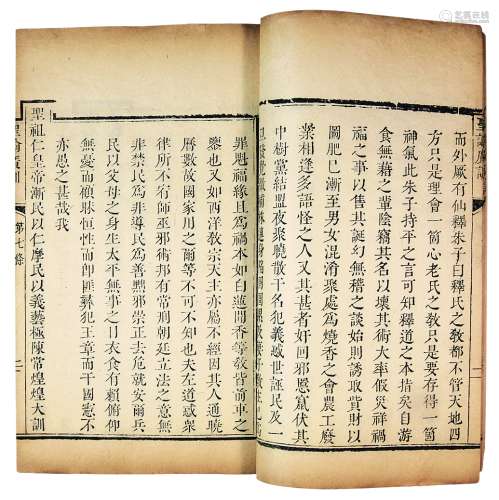 聖諭廣訓
而外厥有仙釋朱子曰釋氏之敎都不管天地四
方只是理會一箇心老氏之敎只是要存得一箇
神氣此朱子持平之言可知釋道之本指矣自游
食無藉之輩陰竊其名以壞其術大率假災祥禍
福之事以售其誕幻無稽之談始則誘取貲財以
圖肥已漸至男女混淆聚處爲燒香之會農工廢
業相逢多語怪之人又其甚者奸回邪慝竄伏其
中樹黨結盟夜聚曉散干名犯義惑世誣民及一
旦發覺徵捕株連身陷囹圄
罪魁福緣且爲禍本如白蓮聞香等敎皆前車之
鑒也又如西洋敎宗天主亦屬不經因其人通曉
厤數故國家用之爾等不可不知也夫左道惑衆
律所不宥師巫邪術邦有常刑朝廷立法之意無
非禁民爲非導民爲善黜邪崇正去危就安爾兵
民以父母之身生太平無事之日衣食有賴俯仰
無憂而顧昧恒性而卽匪彝犯王章而干國憲不
亦愚之甚哉我
聖祖仁皇帝漸民以仁摩民以義藝極陳常煌煌大訓
聖諭廣訓 第七條